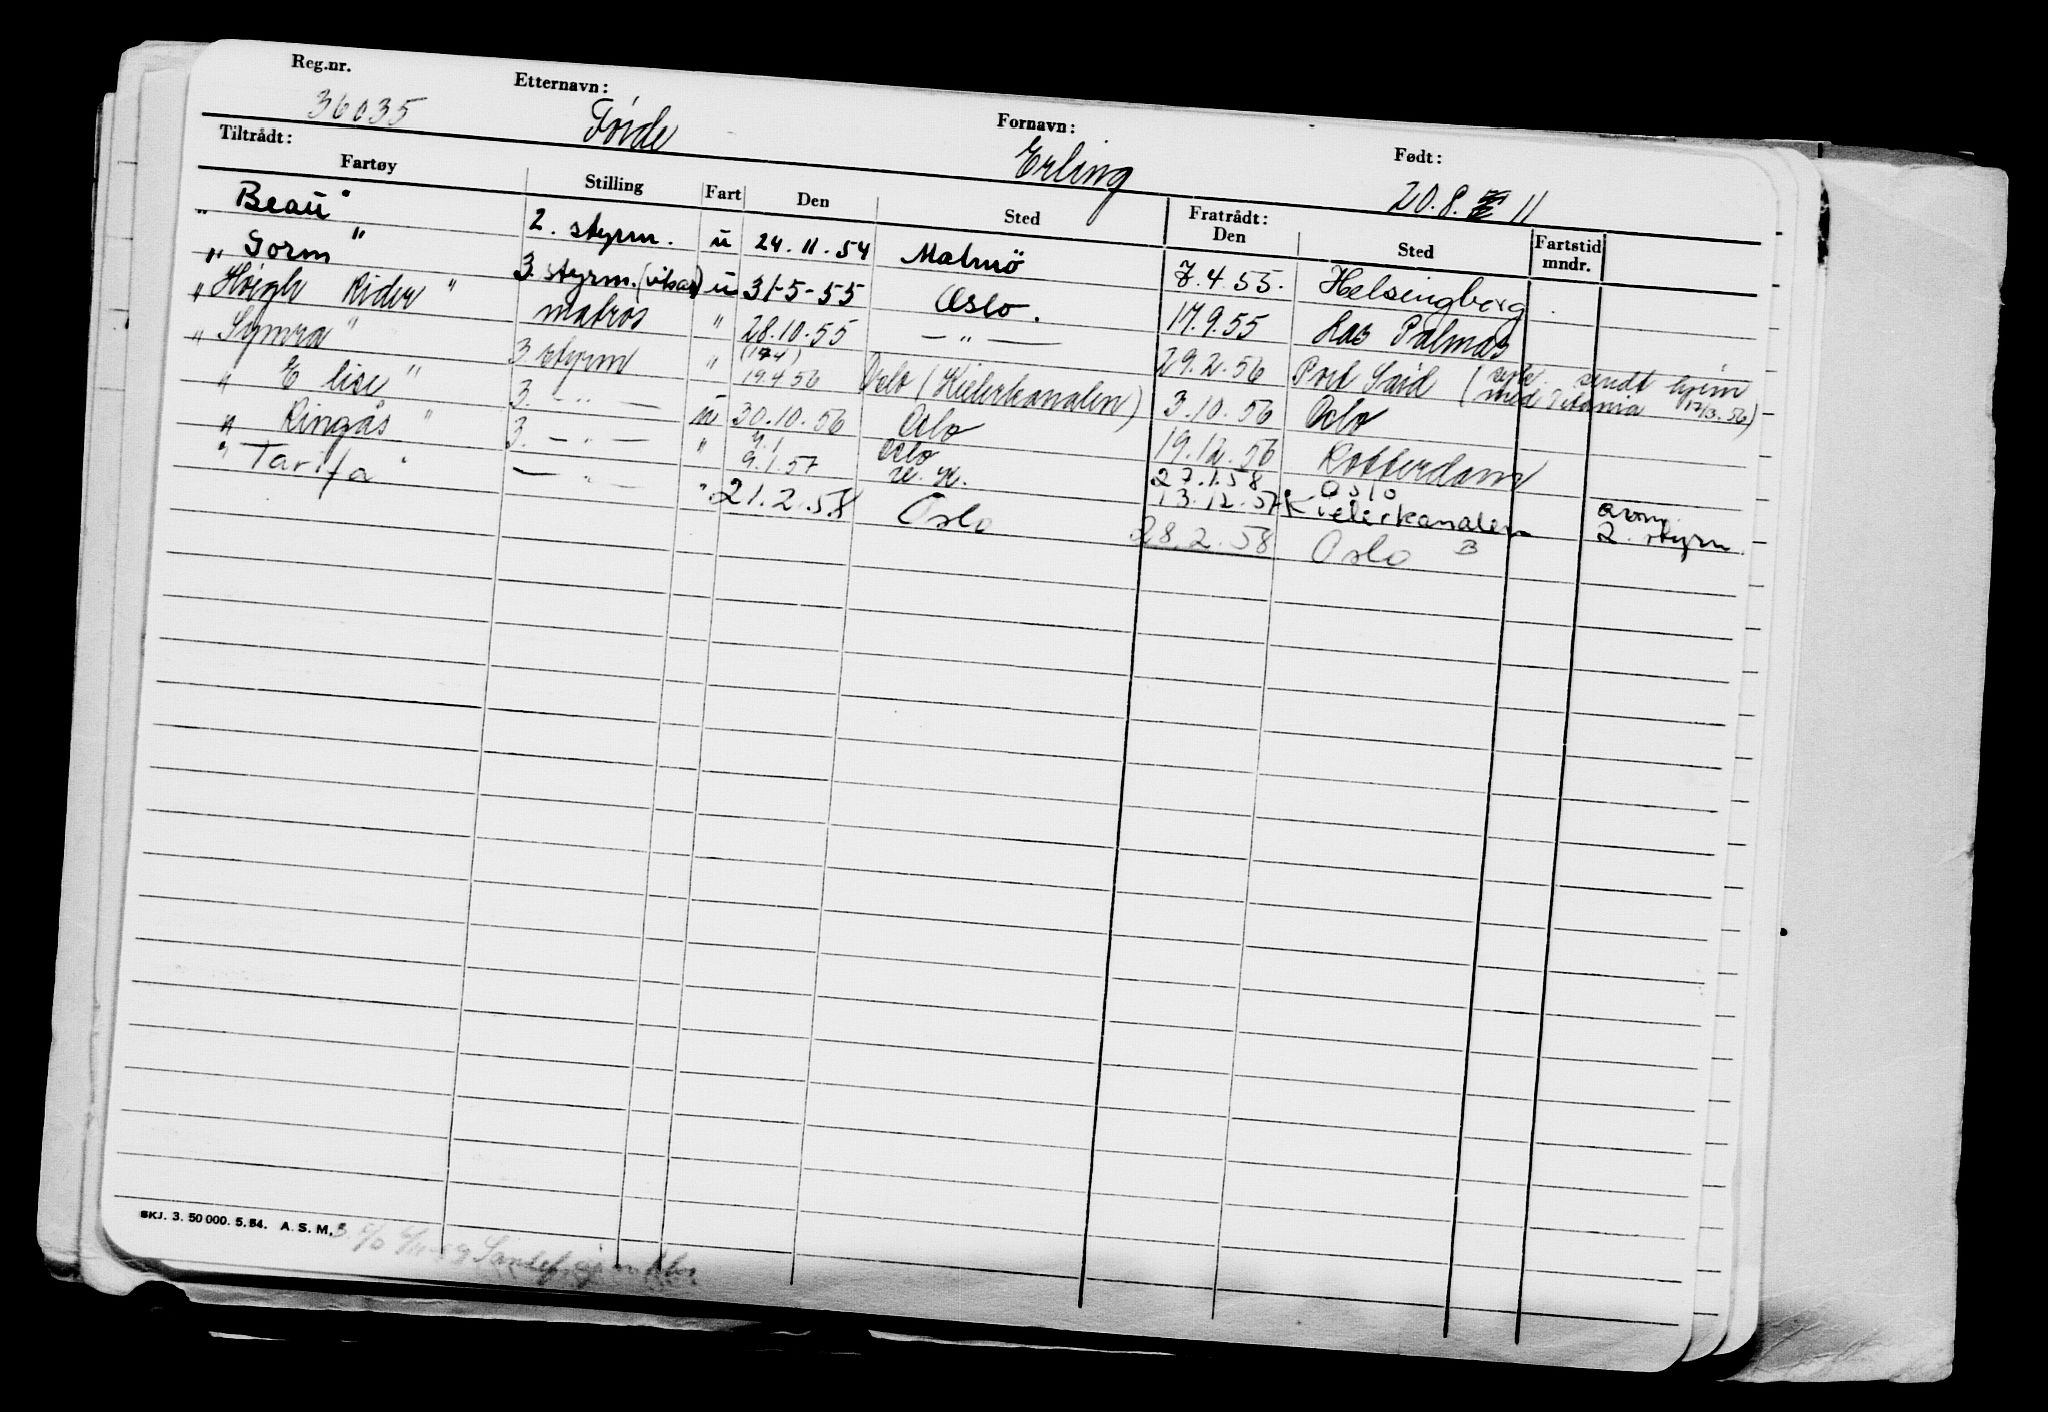 Reg.nr. 36035 Etternavn: Førde Fornavn: Erling Født: 20.8. 11
Tiltrådt: Fratrådt:
Fartøy Stilling Fart Den Sted Den Sted Fartstid mndr.
"Beau" 2. styrm. u 24.11.54 Malmö 7.4.55. Helsingborg
"Gorm" 3. styrm. (vikar) u 31-5-55 Oslo. 17.9.55 Las Palmas
"Høigh Rider" matros " 28.10.55 — " — 29.2.56 Port Said (syk. sendt hjem med Titania 17/3.56)
"Symra" 3 styrm " (17/4) 19.4 56 Oslo (Kielerkanalen) 3.10.56 Oslo
"Elise" 3. — " — u 30.10.56 Oslo 19.12.56 Rotterdam
"Ringås" 3. — " — " 9.1 9.1.57 Oslo U.K. 27.1.58 Oslo
13.12.57 Kielerkanalen avm. 2. styrm.
"Tarifa" — " — " 21.2.58 Oslo 28.2.58 Oslo B
SKJ. 3. 50 000. 5. 54. A. S. M.